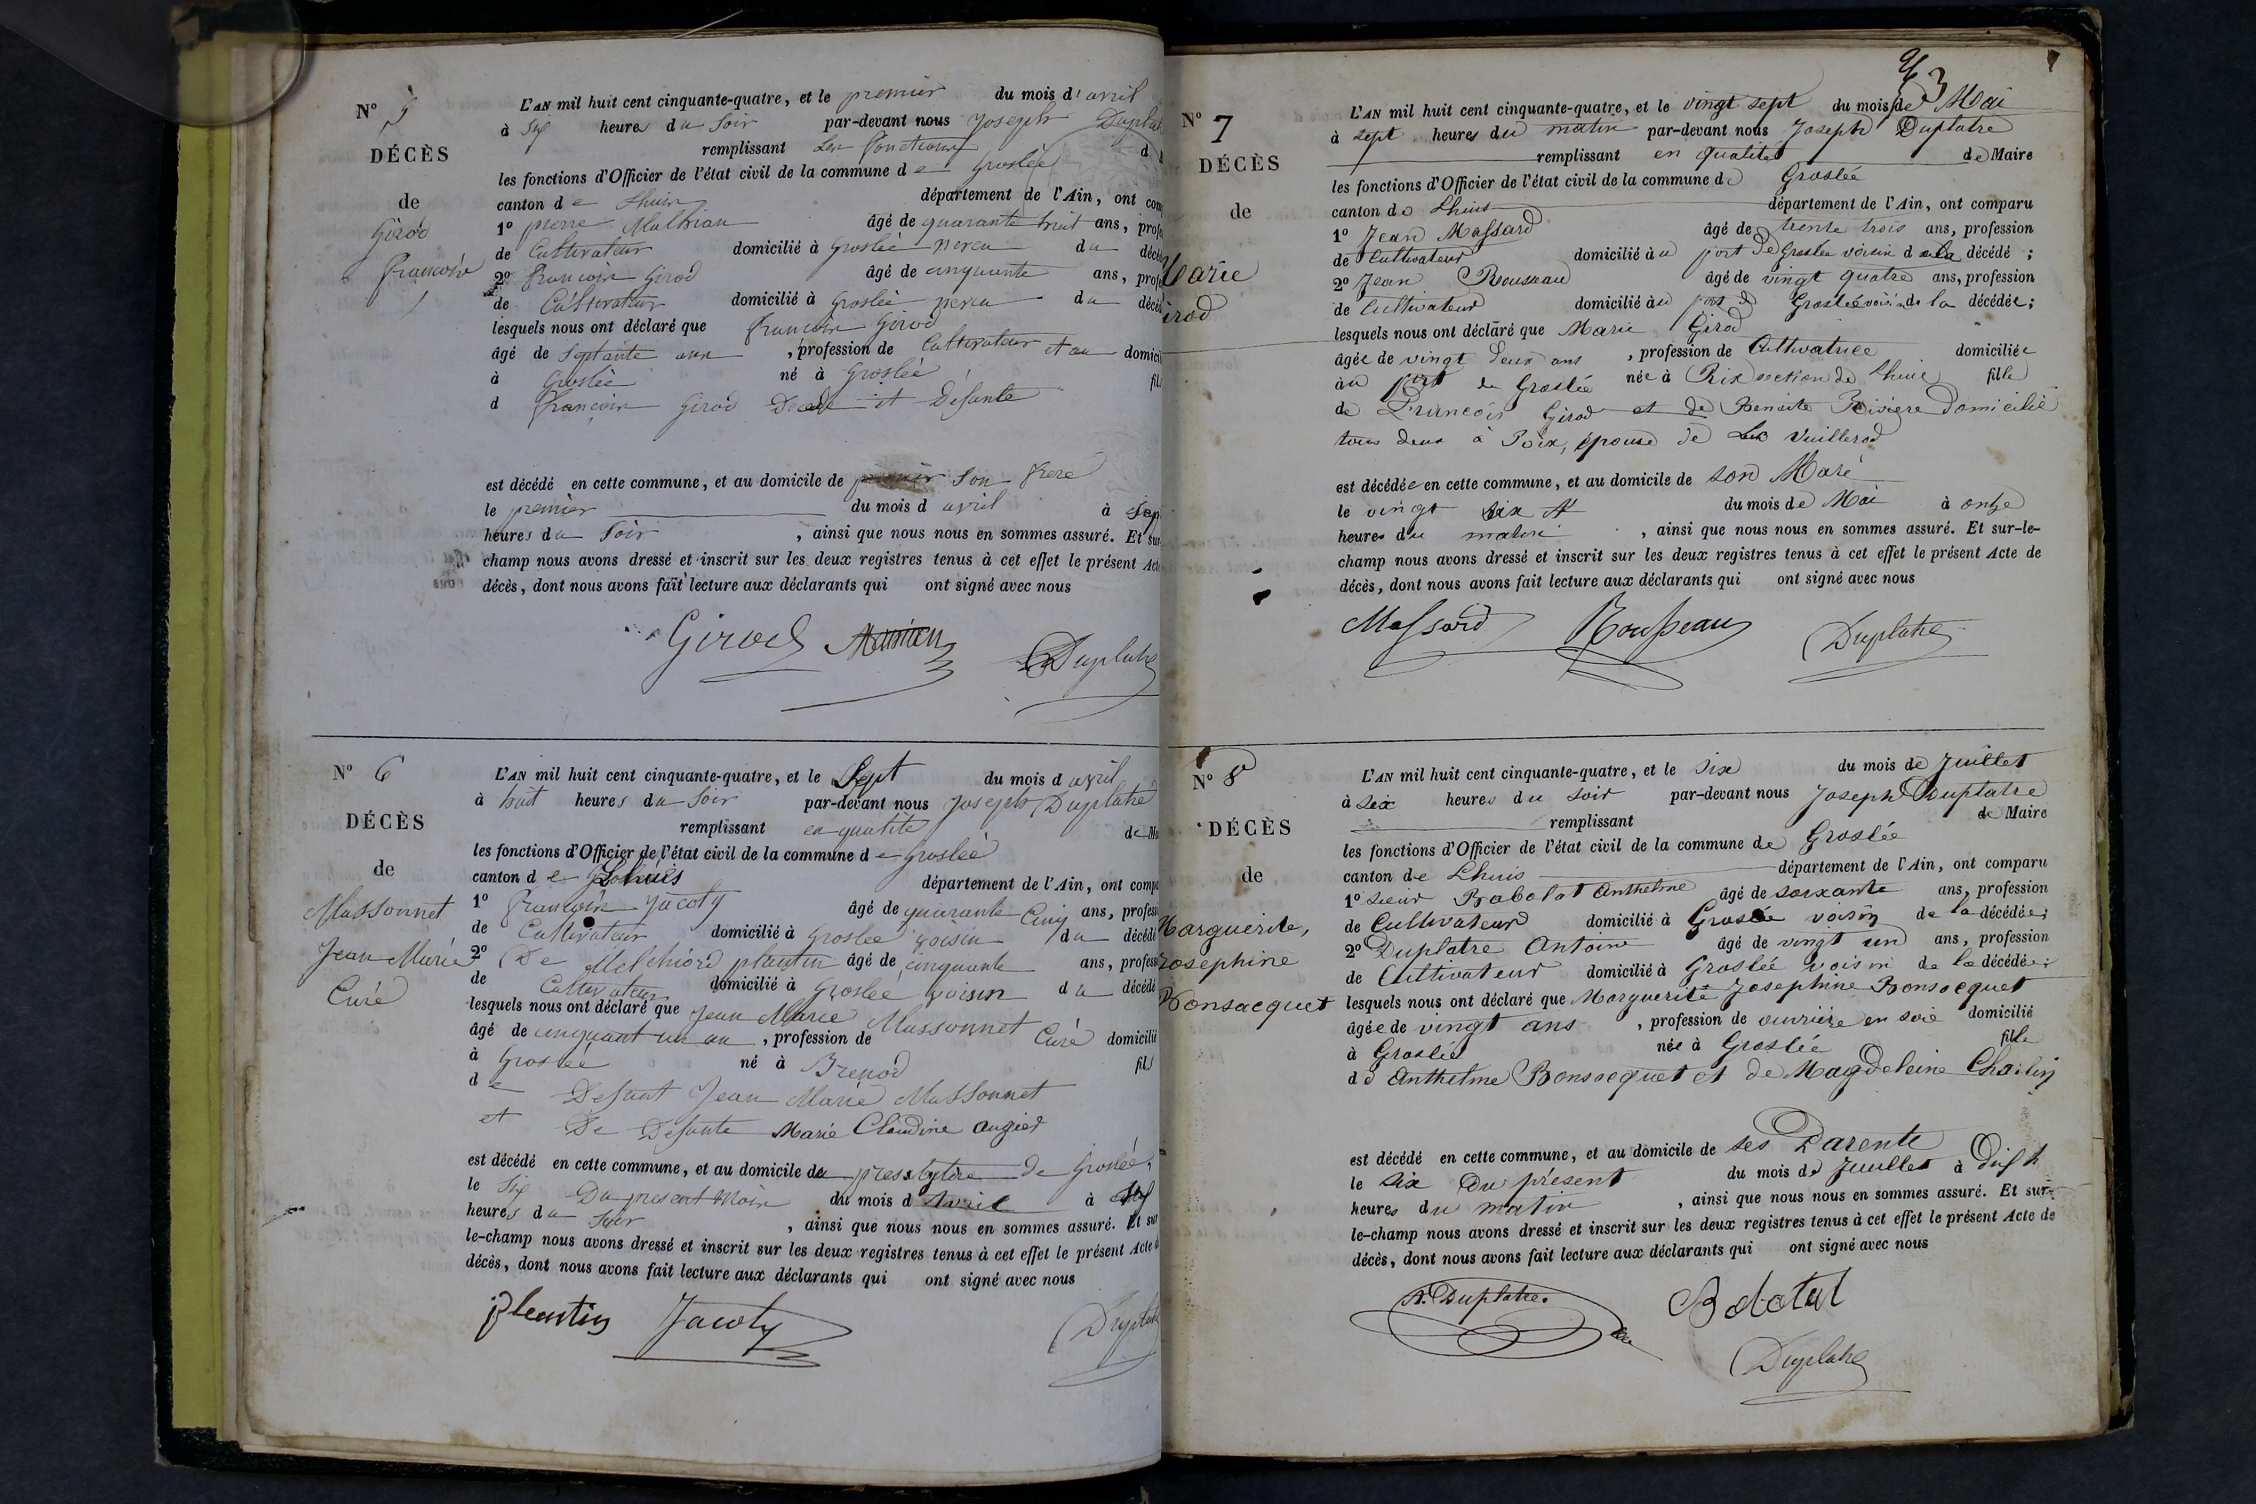 N° 5
DÉCÈS
de
Girod
François
L'AN mil huit cent cinquante-quatre, et le premier du mois d'avril
à six heures du Soir par-devant nous Joseph Duplat
remplissant les fonctions d
les fonctions d'Officier de l'état civil de la commune de Groslée
canton de Lhuis département de l'Ain, ont com
1° pierre âgé de quarante huit ans, profe
de Cultivateur domicilié à Groslée neveu du décéd
2° François Girod âgé de cinquante ans, profe
de Cultivateur domicilié à Groslée neveu du décéd
lesquels nous ont déclaré que François Girod
âgé de Septante ans, profession de Cultivateur et au domici
à Groslée né à Groslée fils
d François Girod et Défunte
est décédé en cette commune, et au domicile de son frere
le premier du mois d avril à Sep
heures du Soir, ainsi que nous nous en sommes assuré. Et sur
champ nous avons dressé et inscrit sur les deux registres tenus à cet effet le présent Acte
décès, dont nous avons fait lecture aux déclarants qui ont signé avec nous
Girod Duplatre
N° 6
DÉCÈS
de
Massonnet
Jean Marie
Curé
L'AN mil huit cent cinquante-quatre, et le Sept du mois d avril
à huit heures du Soir par-devant nous Joseph Duplatre
remplissant en qualité de Ma
les fonctions d'Officier de l'état civil de la commune de Groslée
canton de Lhuis département de l'Ain, ont compa
1° François Jacoty âgé de quarante Cinq ans, profess
de Cultivateur domicilié à Groslée voisin du décédé
2° De Melchiord plantin âgé de cinquante ans, profess
de Cultivateur domicilié à Groslée voisin du décédé
lesquels nous ont déclaré que Jean Marie Massonnet
âgé de cinquant un an, profession de Curé domicilié
à Groslée né à Brenod fils
de Defunt Jean Marie Massonnet
et De Defunte Marie Claudine Augier
est décédé en cette commune, et au domicile du presbytère de Groslée,
le Six Du present Mois du mois d Avril à Six
heures du Soir, ainsi que nous nous en sommes assuré. Et sur
le-champ nous avons dressé et inscrit sur les deux registres tenus à cet effet le présent Acte d
décès, dont nous avons fait lecture aux déclarants qui ont signé avec nous
plantin Jacoty Duplatre
3
N° 7
DÉCÈS
de
Marie
irod
L'AN mil huit cent cinquante-quatre, et le vingt sept du mois de Mai
à sept heures du matin par-devant nous Joseph Duplatre
remplissant en qualité de Maire
les fonctions d'Officier de l'état civil de la commune de Groslée
canton de Lhuis département de l'Ain, ont comparu
1° Jean Massard âgé de trente trois ans, profession
de Cultivateur domicilié au port de Groslée voisin de la décédé ;
2° Jean Rousseau âgé de vingt quatre ans, profession
de Cultivateur domicilié au port de Groslée voisin de la décédée ;
lesquels nous ont déclaré que Marie Girod
âgée de vingt deux ans, profession de Cultivatrice domiciliée
au port de Groslée née à Rix section de Lhuis fille
de François Girod et de Benoite Riviere domicilié
tous deux à Rix, épouse de Vuillerod
est décédée en cette commune, et au domicile de son Maré
le vingt six du mois de Mai à onze
heures du matin, ainsi que nous nous en sommes assuré. Et sur-le-
champ nous avons dressé et inscrit sur les deux registres tenus à cet effet le présent Acte de
décès, dont nous avons fait lecture aux déclarants qui ont signé avec nous
Massard Rousseau Duplatre
N° 8
DÉCÈS
de
Marguerite,
Josephine
Bonsacquet
L'AN mil huit cent cinquante-quatre, et le six du mois de Juillet
à six heures du soir par-devant nous Joseph Duplatre
remplissant de Maire
les fonctions d'Officier de l'état civil de la commune de Groslée
canton de Lhuis département de l'Ain, ont comparu
1° Sieur Babolat Anthelme âgé de soixante ans, profession
de Cultivateur domicilié à Groslée voisin de la décédée ;
2° Duplatre Antoine âgé de vingt un ans, profession
de Cultivateur domicilié à Groslée voisin de la décédée ;
lesquels nous ont déclaré que Marguerite Josephine Bonsacquet
âgée de vingt ans, profession de ouvrière en soie domicilié
à Groslée née à Groslée fille
de Anthelme Bonsacquet et de Magdeleine Charlin
est décédé en cette commune, et au domicile de ses Parents
le six Du présent du mois de Juillet à Dix h
heures du matin, ainsi que nous nous en sommes assuré. Et sur-
le-champ nous avons dressé et inscrit sur les deux registres tenus à cet effet le présent Acte de
décès, dont nous avons fait lecture aux déclarants qui ont signé avec nous
A. Duplatre. Babolat
Duplatre